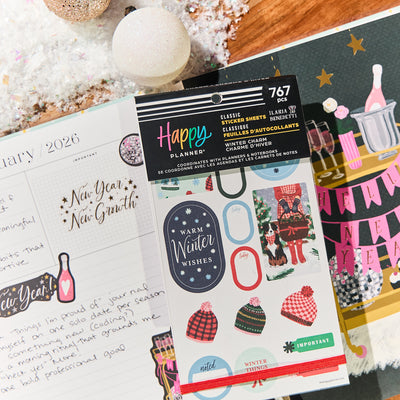 767
pcs
CLASSIC
STICKER SHEETS
CLASSIQUE
FEUILLES D'AUTOCOLLANTS
ILARIA
BENEDETTI
WINTER CHARM
CHARME D'HIVER
Happy
PLANNER
COORDINATES WITH PLANNERS & NOTEBOOKS
SE COORDONNE AVEC LES AGENDAS ET LES CARNETS DE NOTES
uary / 2026
IMPORTANT
New Year
New Growth
New Year!
Things I'm proud of
on one solo date per season
something new (coding?)
a morning ritual that grounds me
one bold professional goal
WARM
Winter
WISHES
noted
WINTER
THINGS
IMPORTANT